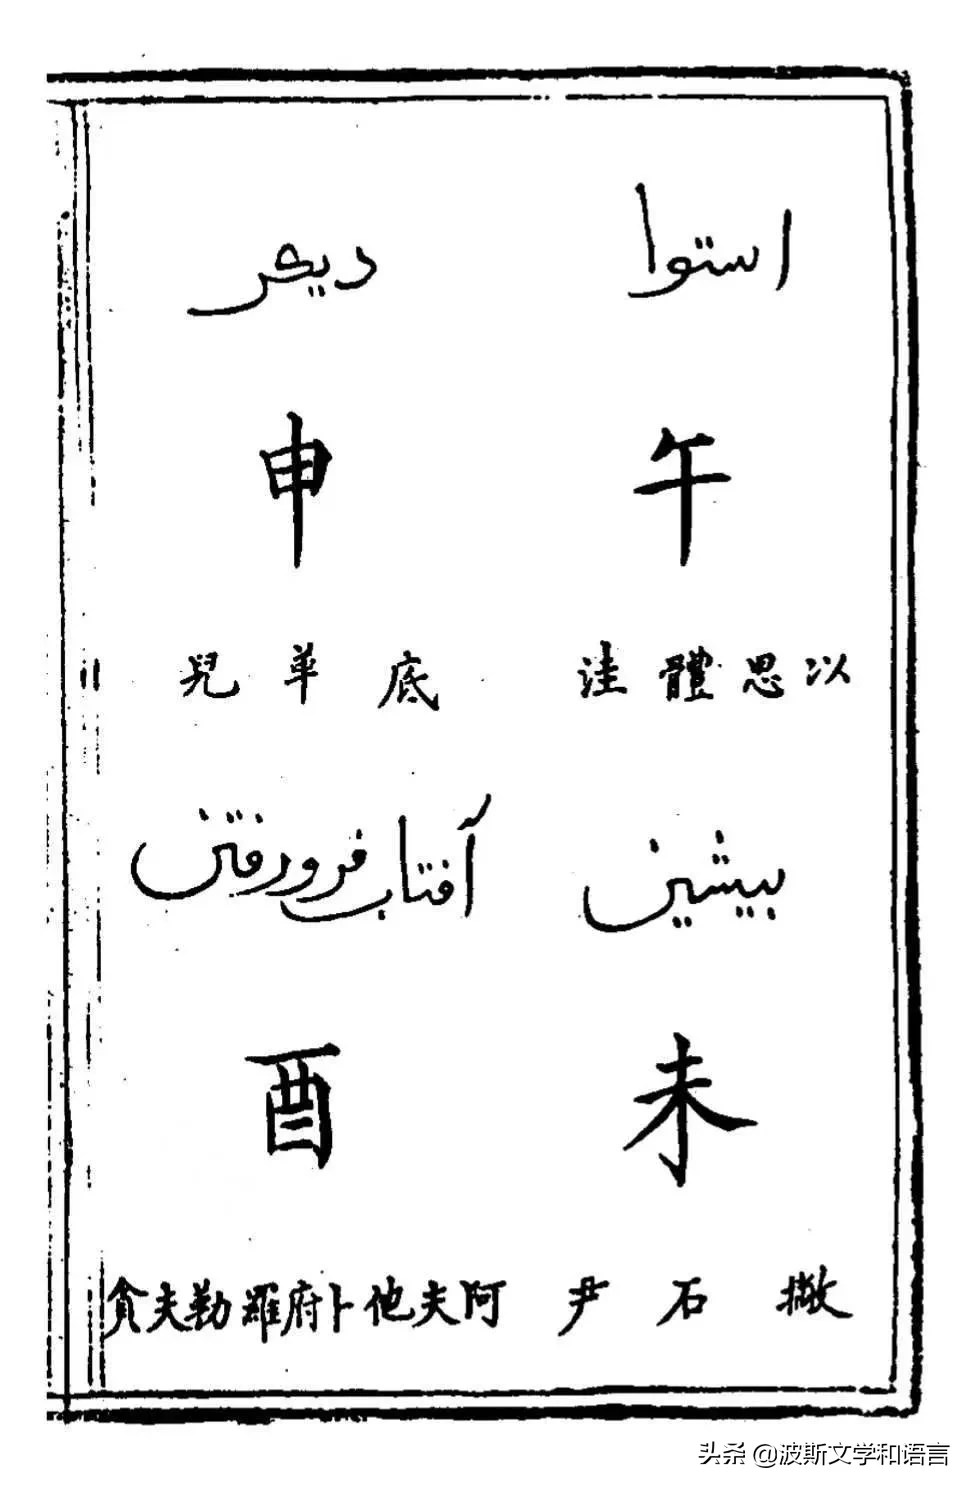 استوا
午
以思體洼
بیشین
未
撇石尹
دیکر
申
底革兒
آفتاب فرو رفتن
酉
阿夫他卜府羅勒夫貪
头条 @波斯文学和语言